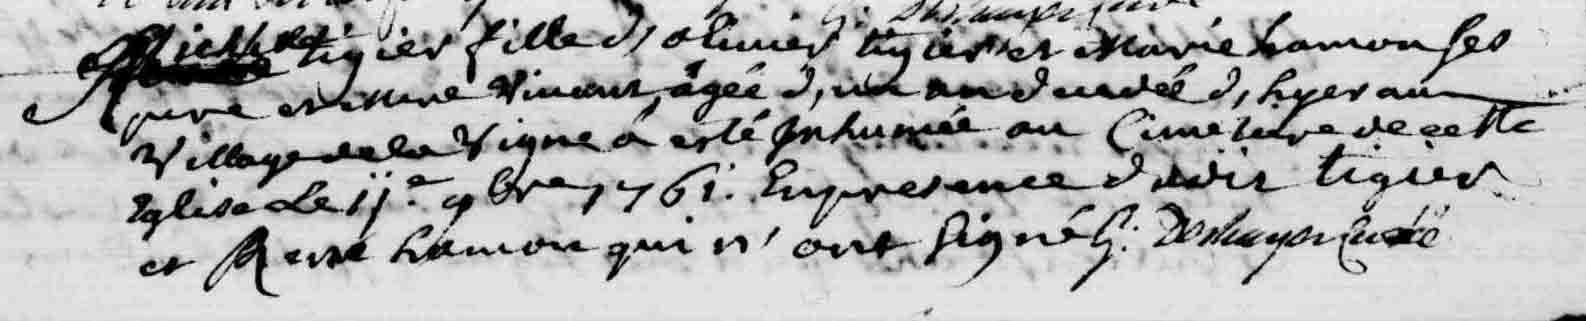 Michelle tigier fille d, olivier tigier et Marie hamon ses
pere et mere Vivant, agée d, un an decedée d, hyer au
Village de la Vigne a esté Inhumée au Cimetiere de cette
Eglise Le 11.e 9bre 1761. En presence dudit tigier
et René hamon qui n' ont Signé G: Deshayes Curé